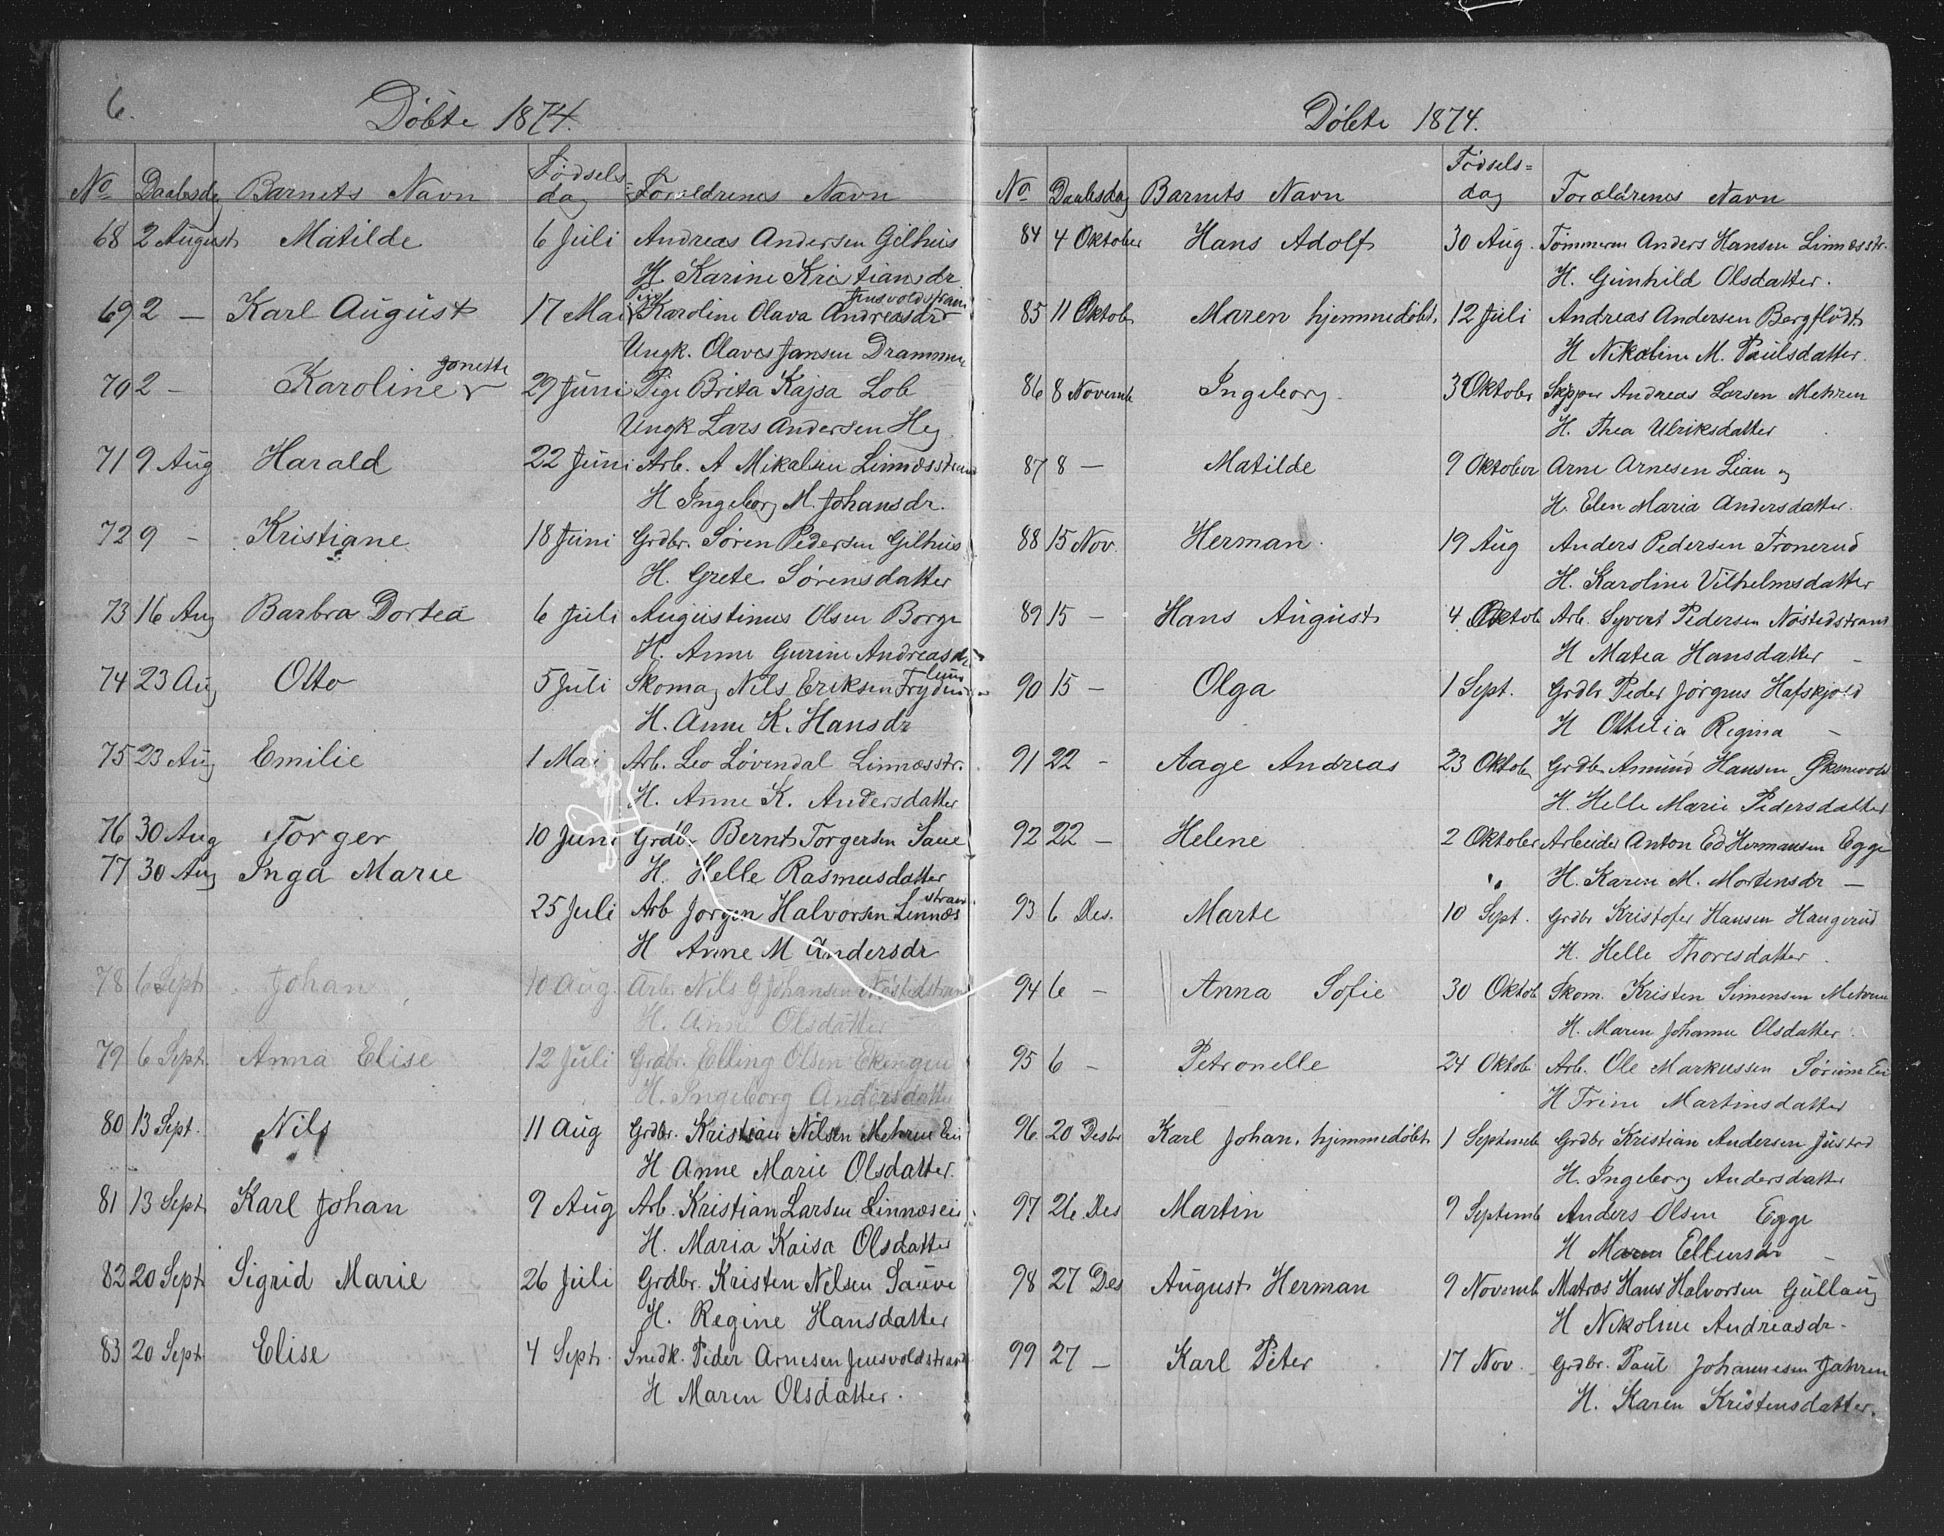 6.
Döbte 1874.
No Daabsdag Barnets Navn Födselsdag Forældrenes Navn
68 2 August Matilde 6 Juli Andreas Andersen Gilhus
H. Karine Kristiansdr
69 2 — Karl August 17 Mai Pige Karoline Olava Andreasdr
Ungk. Olaves Jansen Drammen
70 2 — Karoline Jonette 29 Juni Pige Brita Kajsa Lob
Ungk Lars Andersen Heg
71 9 Aug Harald 22 Juni Arb. A Mikalsen Linnæsstrand
H Ingeborg M. Johansdr.
72 9 - Kristiane 18 Juni Grdbr. Sören Pedersen Gilhus
H. Grete Sörensdatter
73 16 Aug Barbra Dortea 6 Juli Augustinus Olsen Borge
H. Anne Gurine Andreasdr
74 23 Aug Otto 5 Juli Skomag Nils Eriksen Frydenlund
H. Anne K. Hansdr
75 23 Aug Emilie 1 Mai Arb. Leo Lövendal Linnæsstr.
H. Anne K. Andersdatter
76 30 Aug Torger 10 Juni Grdbr Bernt Torgersen Saue
77 30 Aug Inga Marie H. Helle Rasmusdatter
25 Juli Arb Jörgen Halvorsen Linnæsstrand
H Anne M Andersdr
78 6 Sept Johan 10 Aug. Arb. Nils G Johansen Nöstedstrand
H. Anne Olsdatter
79 6 Sept. Anna Elise 12 Juli Grdbr. Elling Olsen Ekengen
H. Ingeborg Andersdatter
80 13 Sept. Nils 11 Aug Grdbr. Kristian Nilsen Mehren Ei
H Anne Marie Olsdatter.
81 13 Sept Karl Johan 9 Aug Arb. Kristian Larsen Linnæsei
H. Maria Kaisa Olsdatter
82 20 Sept Sigrid Marie 26 Juli Grdbr. Kristen Nilsen Sauve
H. Regine Hansdatter
83 20 Sept Elise 4 Sept. Snedk. Peder Arnesen Jensvoldstrand
H Maren Olsdatter.
Döbte 1874.
No Daabsdag Barnets Navn Födsels=dag Forældrenes Navn
84 4 Oktober Hans Adolf 30 Aug. Tömmerm Anders Hansen Linnæsstr.
H. Gunhild Olsdatter.
85 11 Oktob Maren hjemmedöbt. 12 Juli Andreas Andersen Bergflödt
H Nikoline M. Paulsdatter.
86 8 Novemb Ingeborg. 3 Oktober Skipper Andreas Larsen Mehren
H. Thea Ulriksdatter
87 8 — Matilde 9 Oktober Arne Arnesen Lian og
H. Elen Maria Andersdatter.
88 15 Nov. Herman. 19 Aug Anders Pedersen Tronerud
H. Karoline Vilhelmsdatter
89 15 - Hans August 4 Oktob Arb. Syvert Pedersen Nöstedstrand
H Matea Hansdatter —
90 15 - Olga 1 Sept. Grdbr Peder Jörgens Hafskjold
H Ottilia Regina —
91 22 - Aage Andreas 23 Oktober Grdbr Amund Hansen
H. Helle Marie Pedersdatter
92 22 — Helene 2 Oktober Arbeider Anton Ed Hermansen Egge
H. Karen M. Mortensdr —
93 6 Des. Marte 10 Sept. Grdbr Kristofer Hansen Haugerud
H. Helle Thoresdatter.
94 6 - Anna Sofie 30 Oktob Skom. Kristen Simensen Mehren
H. Maren Johanne Olsdatter.
95 6 - Petronelle 24 Oktob Arb. Ole Markussen Sörum Ei
H Trine Martinsdatter
96 20 Desbr Karl Johan. hjemmedöbt 1 Septemb Grdbr Kristian Andersen Justad
H. Ingeborg Andersdatter
97 26 Des Martin 9 Septemb Anders Olsen Egge
H Maren Ellensdr —
98 27 Des August Herman 9 Novemb Matros Hans Halvorsen Gullaug
H Nikoline Andreasdr.
99 27 — Karl Peter 17 Nov. Grdbr. Paul Johannesen Jahren
H. Karen Kristensdatter.